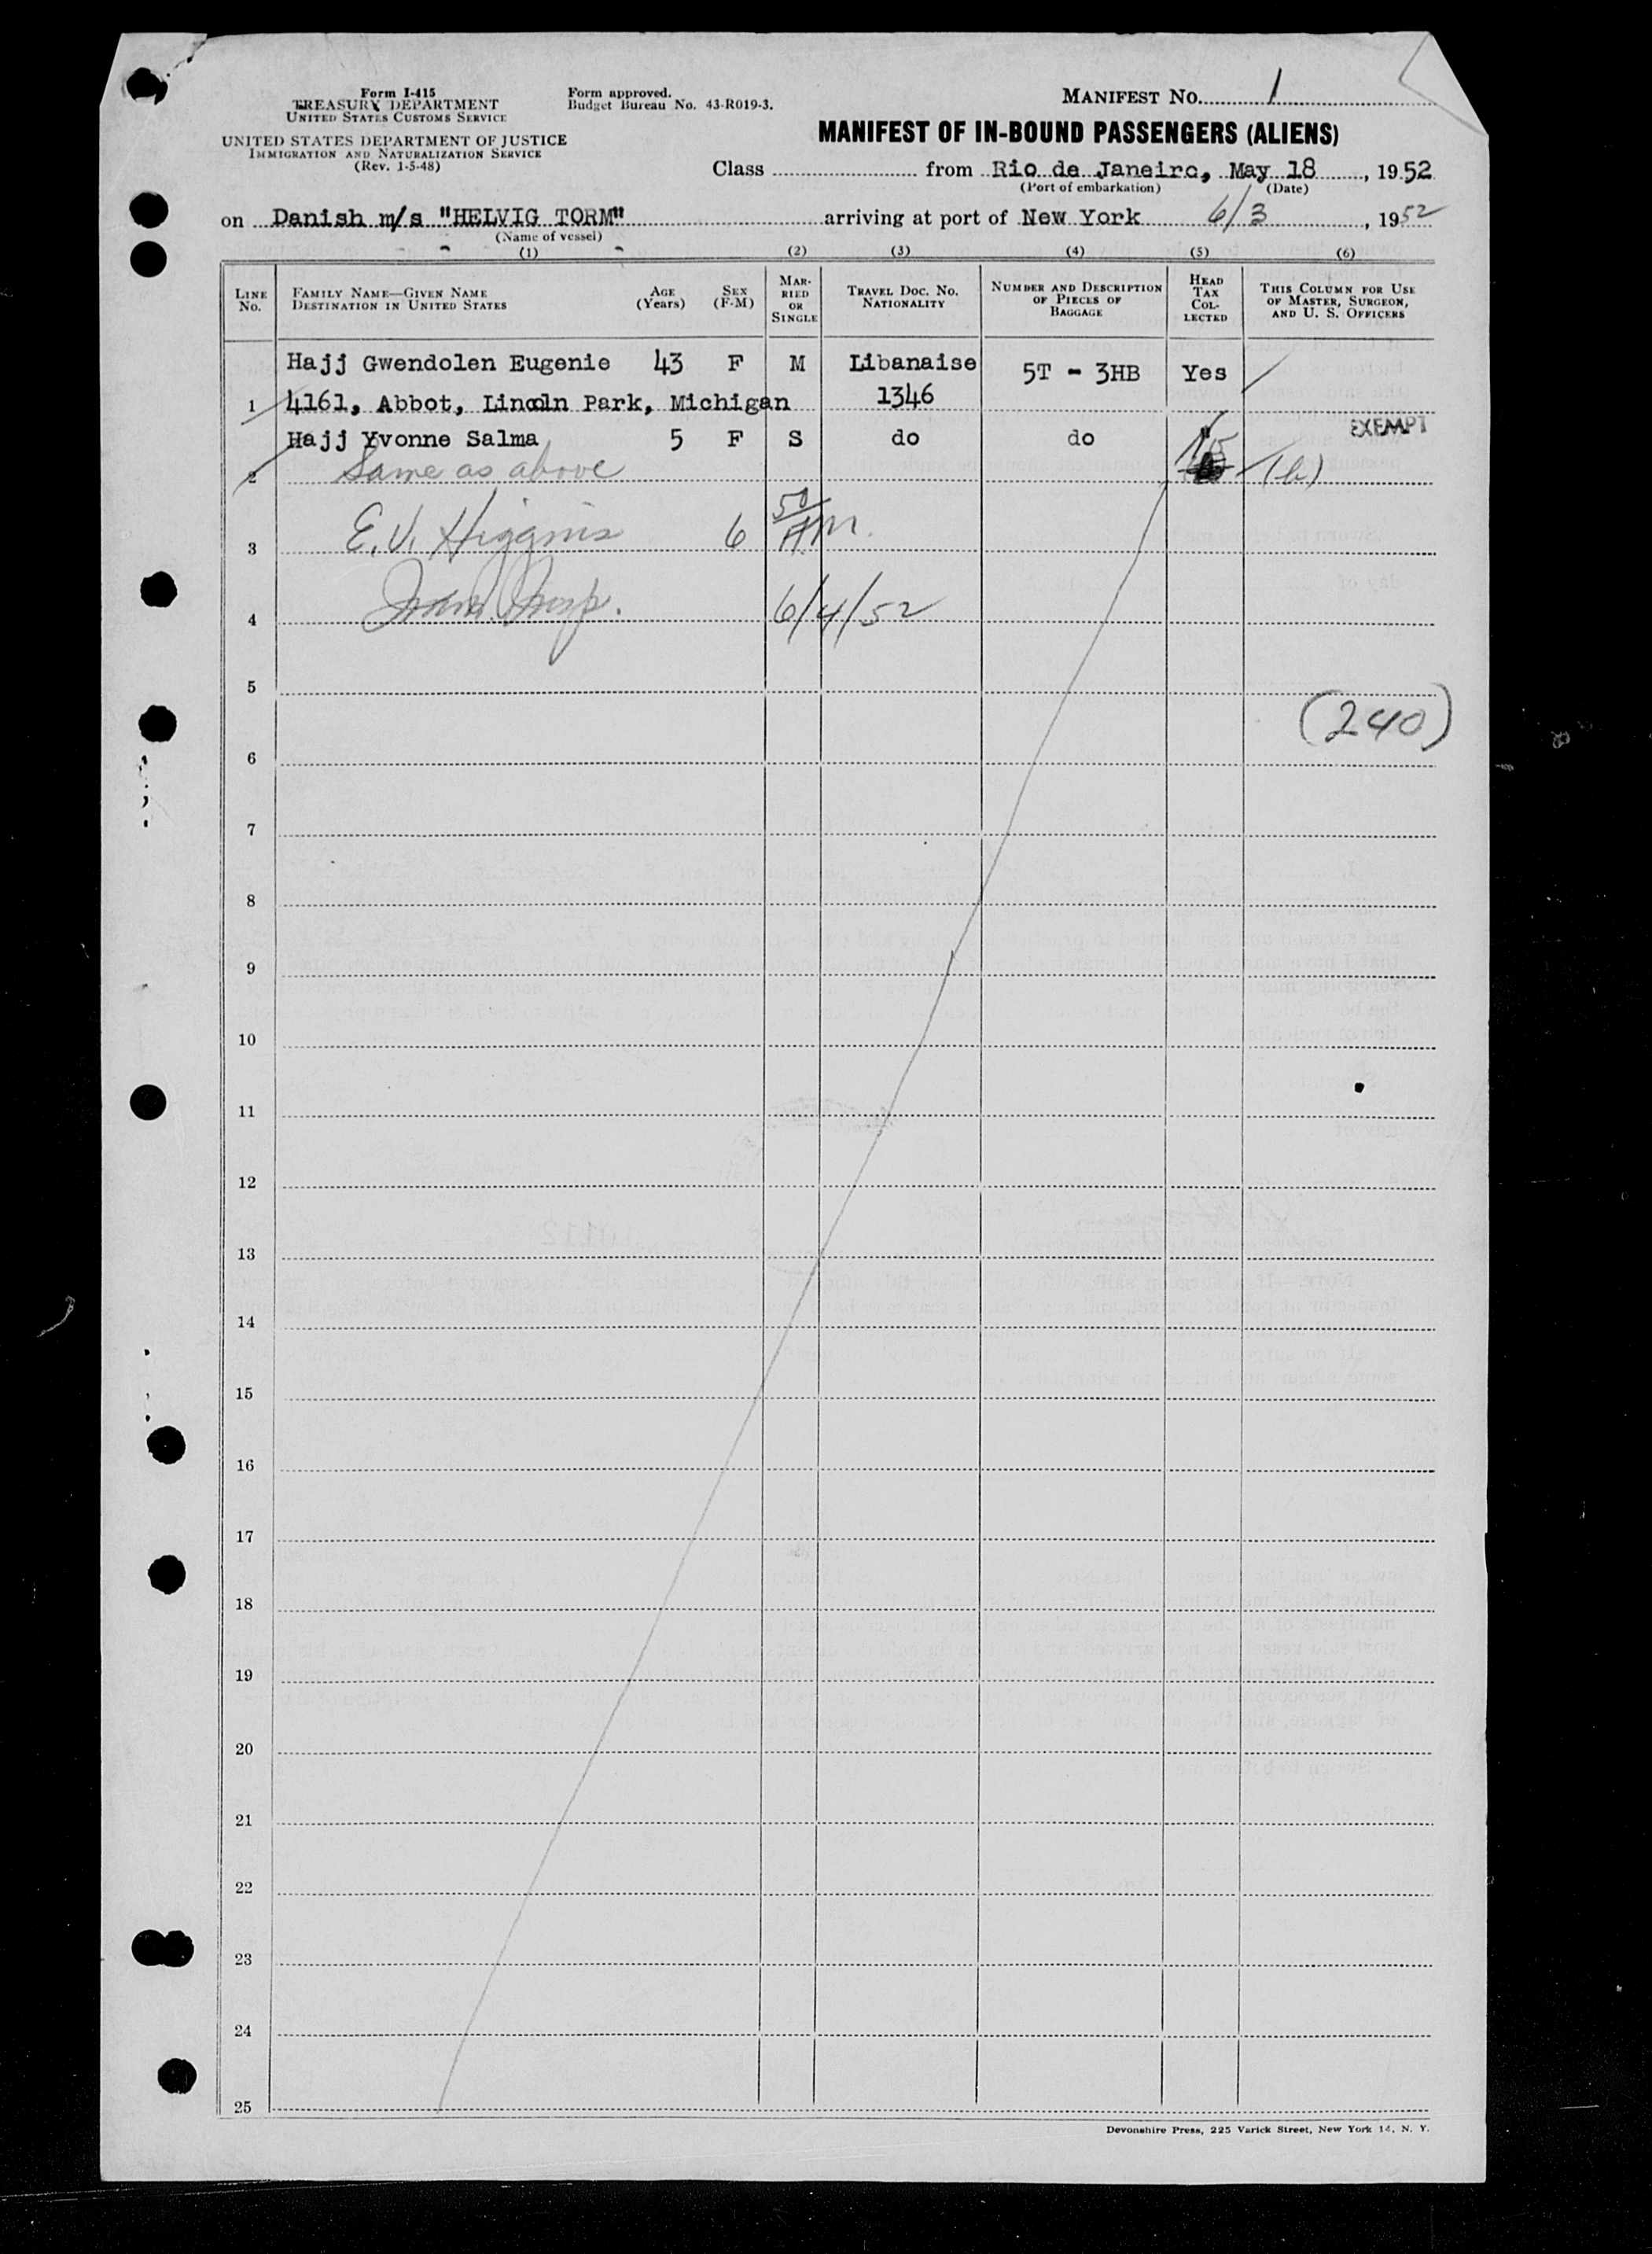 Form I-415
TREASURY DEPARTMENT
UNITED STATES CUSTOMS SERVICE
UNITED STATES DEPARTMENT OF JUSTICE
IMMIGRATION AND NATURALIZATION SERVICE
(Rev. 1-5-48)
Form approved.
Budget Bureau No. 43-R019-3.
MANIFEST NO. 1
MANIFEST OF IN-BOUND PASSENGERS (ALIENS)
Class from Rio de Janeiro, May 18, 1952
(Port of embarkation) (Date)
on Danish m/s "HELVIG TORM" arriving at port of New York 6/3, 1952
(Name of vessel)
(1) (2) (3) (4) (5) (6)
LINE NO. FAMILY NAME—GIVEN NAME DESTINATION IN UNITED STATES AGE (Years) SEX (F-M) MARRIED OR SINGLE TRAVEL DOC. NO. NATIONALITY NUMBER AND DESCRIPTION OF PIECES OF BAGGAGE HEAD TAX COLLECTED THIS COLUMN FOR USE OF MASTER, SURGEON, AND U. S. OFFICERS
Hajj Gwendolen Eugenie 43 F M Libanaise 5T - 3HB Yes
1 4161, Abbot, Lincoln Park, Michigan 1346
Hajj Yvonne Salma 5 F S do do EXEMPT
2 Same as above
3 E.V. Higgins 6 50
4 6/4/52
5
(240)
6
7
8
9
10
11
12
13
14
15
16
17
18
19
20
21
22
23
24
25
Devonshire Press, 225 Varick Street, New York 14, N. Y.